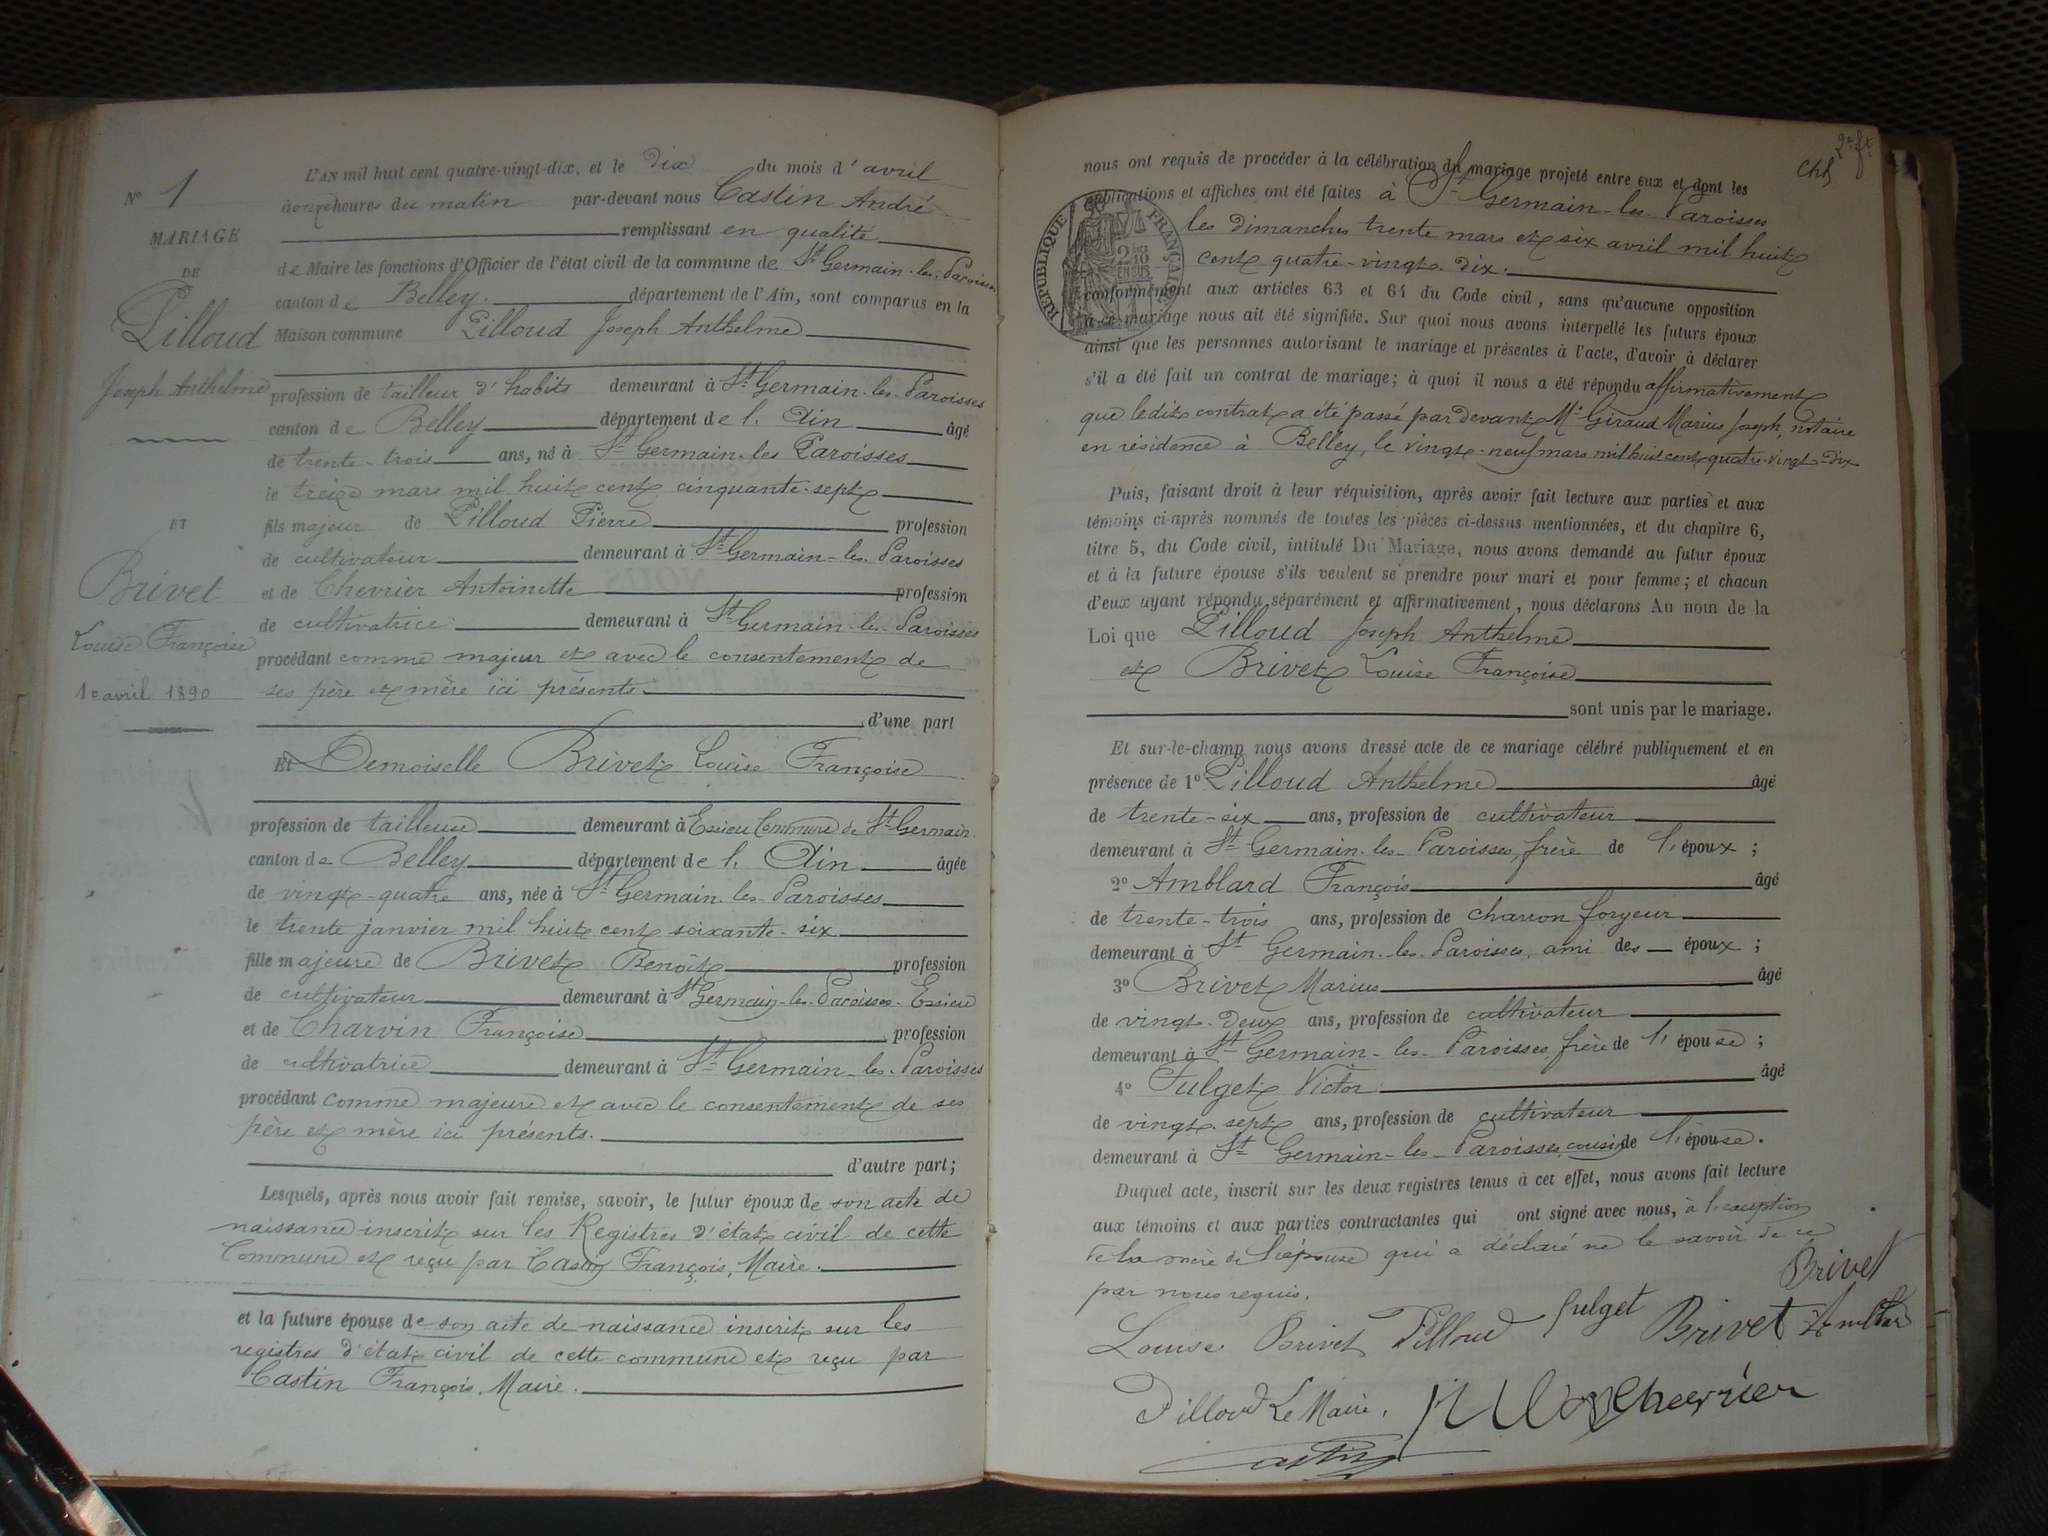 N° 1
MARIAGE
DE
Pilloud
Joseph Anthelme
ET
Brivet
Louise Françoise
10 avril 1890
L'AN mil huit cent quatre-vingt-dix, et le dix du mois d'avril
à onze heures du matin par-devant nous Castin André
remplissant en qualité
de Maire les fonctions d'Officier de l'état civil de la commune de St Germain-les-Paroisses
canton de Belley. département de l'Ain, sont comparus en la
Maison commune Pilloud Joseph Anthelme
profession de tailleur d'habits demeurant à St Germain-les-Paroisses
canton de Belley département de l'Ain âgé
de trente-trois ans, né à St Germain-les Paroisses
le treize mars mil huit cent cinquante-sept
fils majeur de Pilloud Pierre profession
de cultivateur demeurant à St Germain-les-Paroisses
et de Chevrier Antoinette profession
de cultivatrice demeurant à St Germain-les-Paroisses
procédant comme majeur et avec le consentement de
ses père et mère ici présents
d'une part
Et Demoiselle Brivet Louise Françoise
profession de tailleuse demeurant à Essieu Commune de St Germain
canton de Belley département de l'Ain âgée
de vingt-quatre ans, née à St Germain-les-Paroisses
le trente janvier mil huit cent soixante-six
fille majeure de Brivet Benoît profession
de cultivateur demeurant à St Germain-les-Paroisses-Essieu
et de Charvin Françoise profession
de cultivatrice demeurant à St Germain-les-Paroisses
procédant comme majeure et avec le consentement de ses
père et mère ici présents.
d'autre part;
Lesquels, après nous avoir fait remise, savoir, le futur époux de son acte de
naissance inscrit sur les Registres d'état civil de cette
Commune et reçu par François, Maire.
et la future épouse de son acte de naissance inscrit sur les
registres d'état civil de cette commune et reçu par
Castin François, Maire.
nous ont requis de procéder à la célébration du mariage projeté entre eux et dont les
publications et affiches ont été faites à St Germain-les-Paroisses
les dimanches trente mars et six avril mil huit
cent quatre-vingt-dix.
RÉPUBLIQUE FRANÇAISE
conformément aux articles 63 et 64 du Code civil, sans qu'aucune opposition
à ce mariage nous ait été signifiée. Sur quoi nous avons interpellé les futurs époux
ainsi que les personnes autorisant le mariage et présentes à l'acte, d'avoir à déclarer
s'il a été fait un contrat de mariage; à quoi il nous a été répondu affirmativement
que ledit contrat a été passé par devant Me Giraud Marius Joseph, notaire
en résidence à Belley, le vingt-neuf mars mil huit cent quatre-vingt-dix
Puis, faisant droit à leur réquisition, après avoir fait lecture aux parties et aux
témoins ci-après nommés de toutes les pièces ci-dessus mentionnées, et du chapitre 6,
titre 5, du Code civil, intitulé Du Mariage, nous avons demandé au futur époux
et à la future épouse s'ils veulent se prendre pour mari et pour femme; et chacun
d'eux ayant répondu séparément et affirmativement, nous déclarons Au nom de la
Loi que Pilloud Joseph Anthelme
et Brivet Louise Françoise
sont unis par le mariage.
Et sur-le-champ nous avons dressé acte de ce mariage célébré publiquement et en
présence de 1° Pilloud Anthelme âgé
de trente-six ans, profession de cultivateur
demeurant à St Germain-les-Paroisses, frère de l'époux;
2° Amblard François âgé
de trente-trois ans, profession de charron forgeur
demeurant à St Germain-les-Paroisses, ami des époux;
3° Brivet Marius âgé
de vingt-deux ans, profession de cultivateur
demeurant à St Germain-les-Paroisses frère de l'épouse;
4° Fulget Victor âgé
de vingt-sept ans, profession de cultivateur
demeurant à St Germain-les-Paroisses, cousin de l'épouse.
Duquel acte, inscrit sur les deux registres tenus à cet effet, nous avons fait lecture
aux témoins et aux parties contractantes qui ont signé avec nous, à l'exception
de la mère de l'épouse qui a déclaré ne le savoir de ce
par nous requis.
Brivet
Louise Brivet Pilloud fulget Brivet Amblard
Pilloud Le Maire, Chevrier
Castin